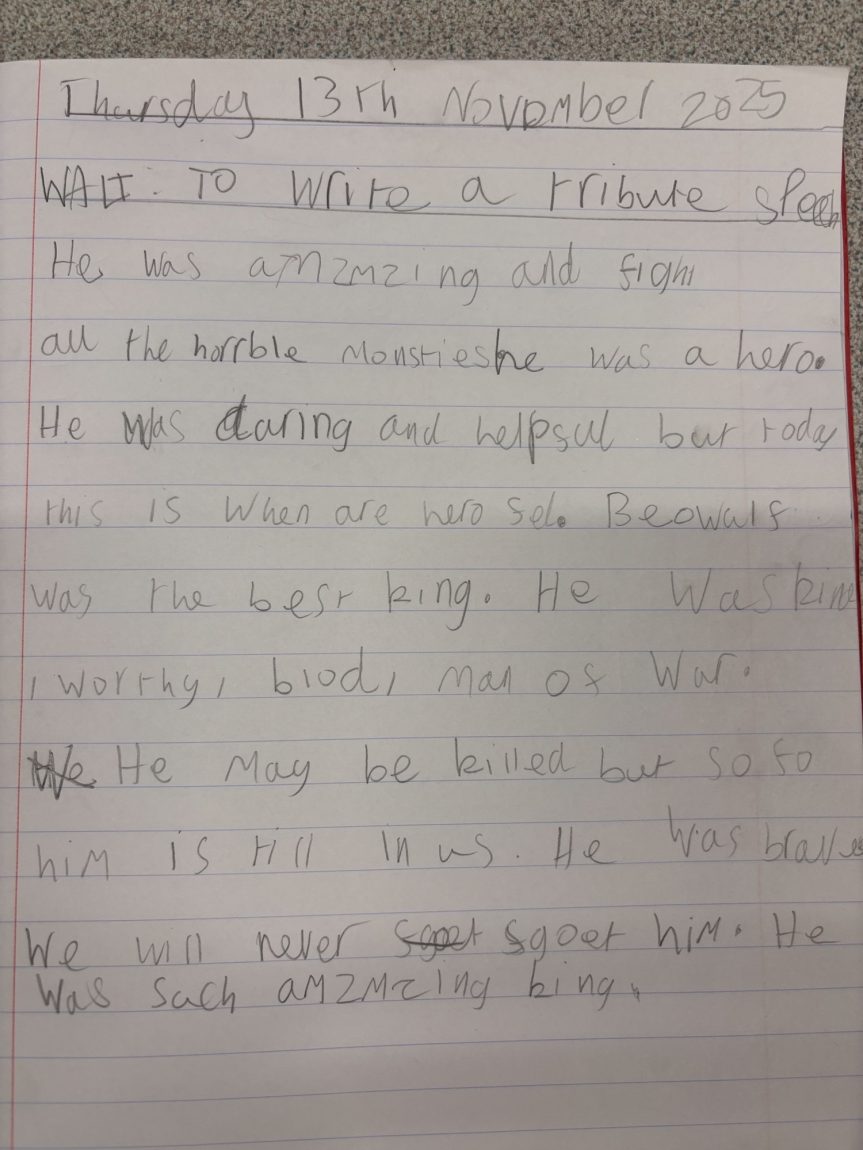 Thursday 13th November 2025
WALT: TO Write a tribute speech
He was amzmzing and figh
all the horrble monsties he was a hero.
He was daring and helpsul but today
this is when are hero sel. Beowals
was the best king. He was kine
, worthy, blod, man os war.
He may be killed but so fo
him is till in us. He was brave
We will never sgoet him. He
was such amzmzing king.